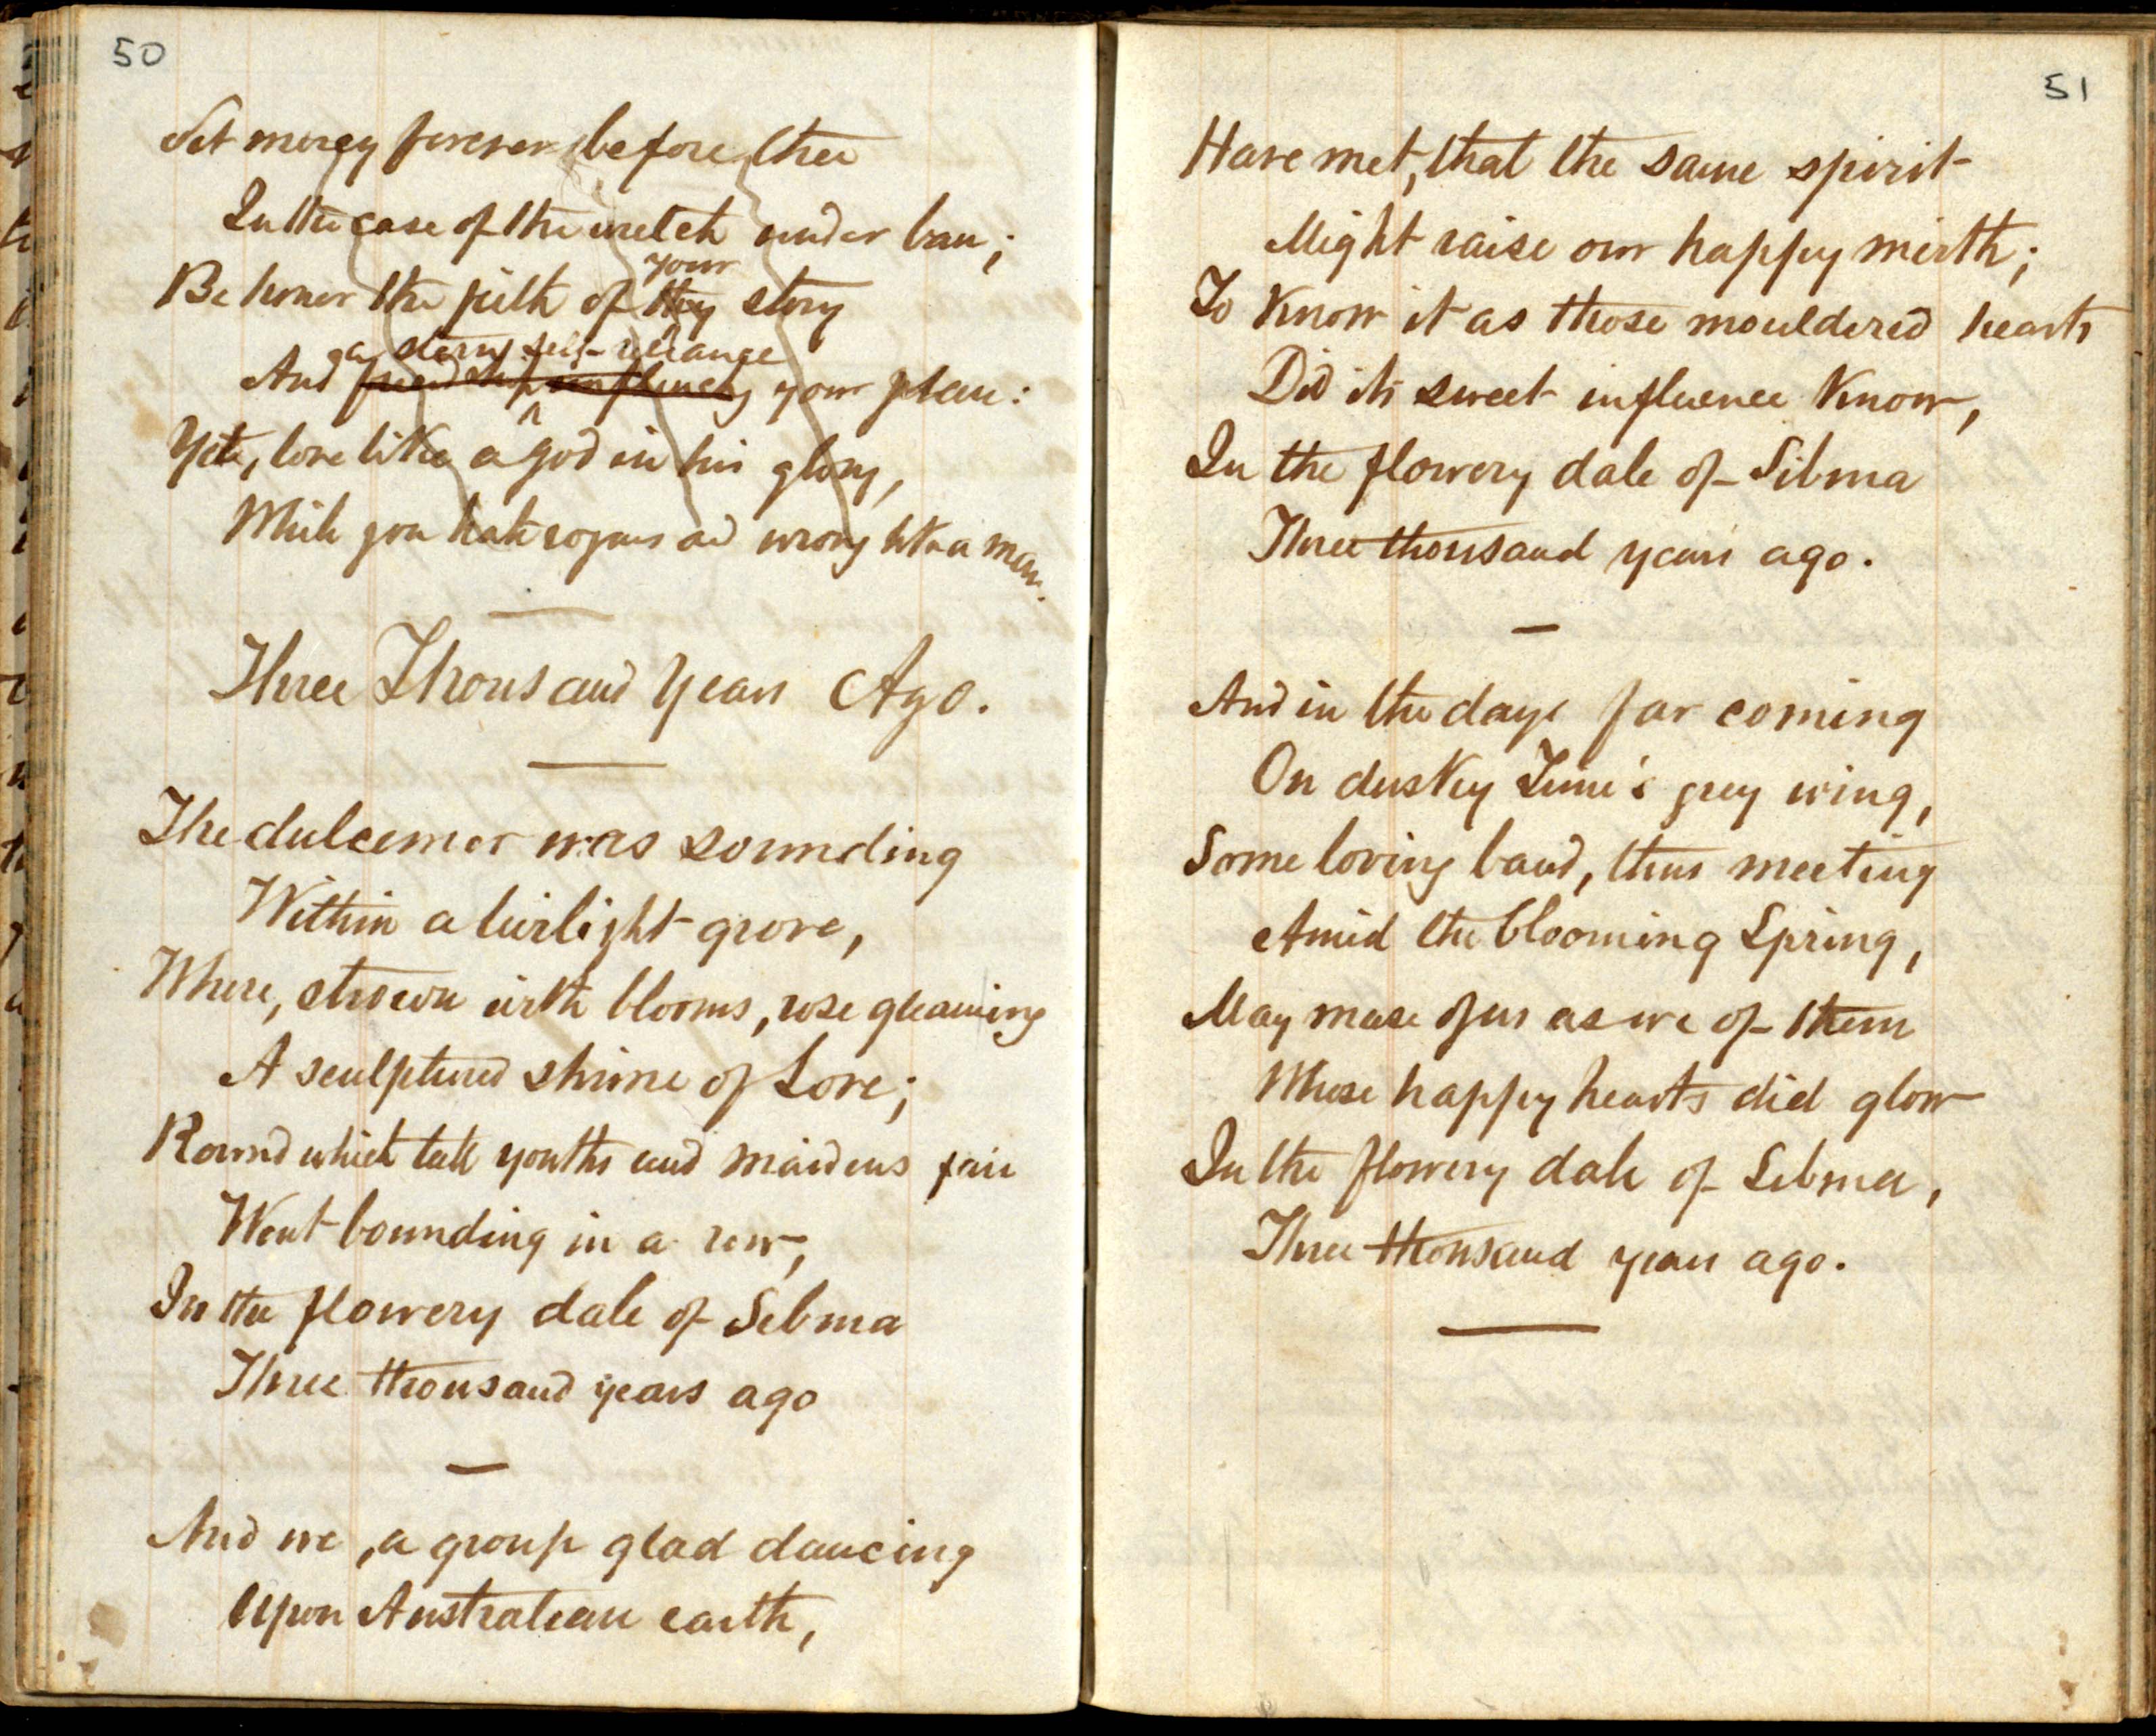 50
Set mercy forever before thee
In the case of the wretch under ban;
your
Be honor the pith of thy story
a stern self-reliance
And friendship your plan:
Yet, love like a god in his glory,
While you hate rogues and wrong like a man.
Three Thousand Years Ago.
The dulcemer was sounding
Within a twilight grove,
Where, strown with blooms, rose gleaming
A sculptured shrine of Love;
Round which tall youths and maidens fair
Went bounding in a row,
In the flowery dale of Sibma
Three thousand years ago
And we, a group glad dancing
Upon Australian earth,
51
Have met, that the same spirit
Might raise our happy mirth;
To know it as those mouldered hearts
Did its sweet influence know,
In the flowery dale of Sibma
Three thousand years ago.
And in the days far coming
On dusky Time's grey wing,
Some loving band, thus meeting
Amid the blooming Spring,
May muse of us as we of them
Whose happy hearts did glow
In the flowery dale of Sibma,
Three thousand years ago.